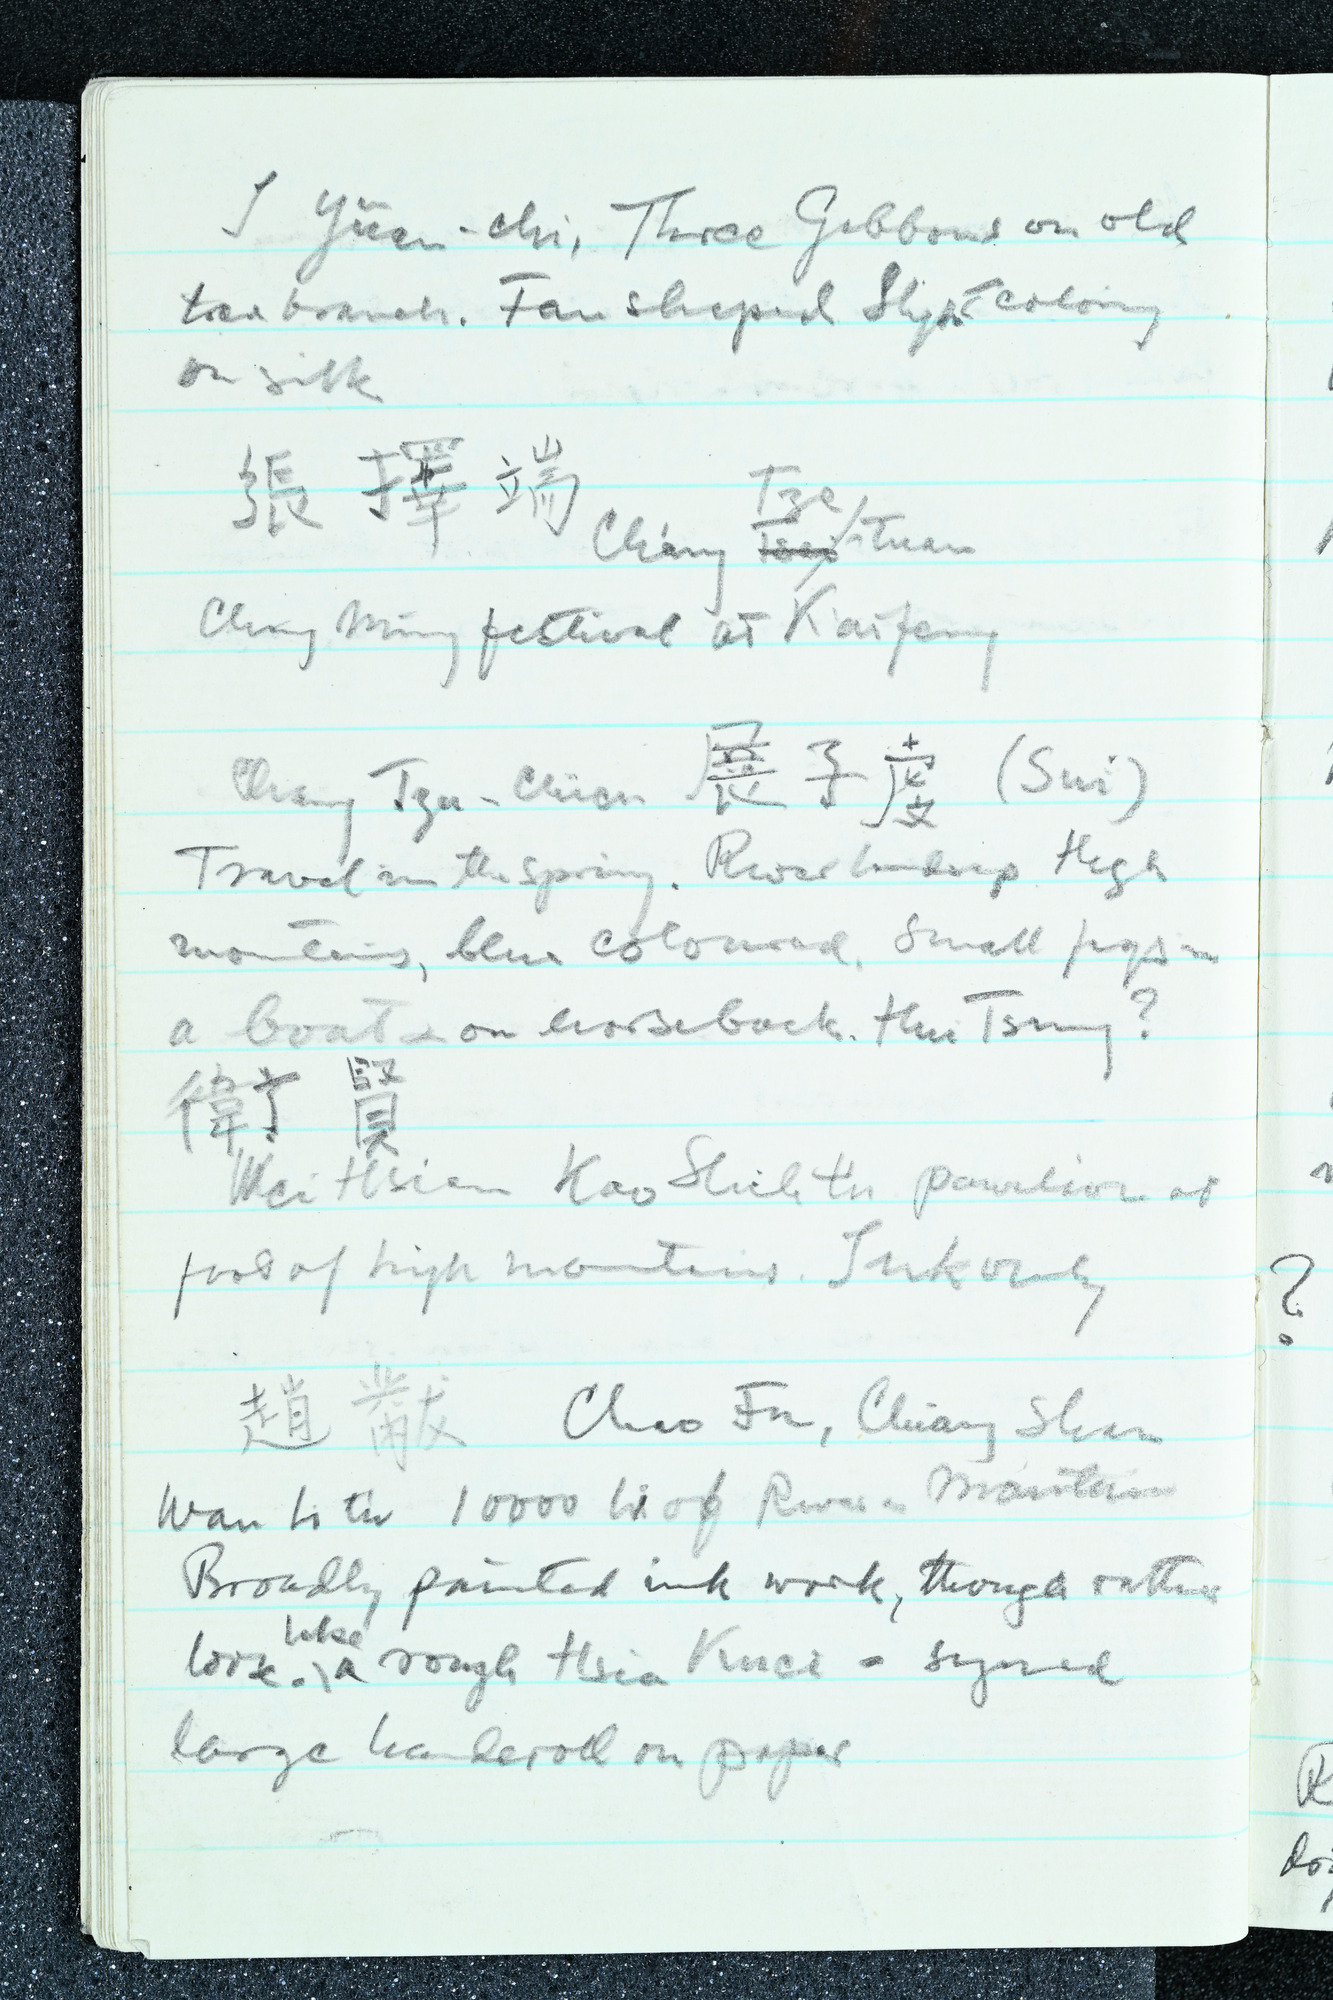 I Yüan-chi, Three Gibbons on old
tree branch. Fan shaped Slight coloring
on silk
張 擇 端
Tze
Chang Tuan
Ching Ming festival at Kaifeng
Chang Tzu-Chien 展子虔 (Sui)
Travel in the spring. River landscp High
mountains, blue coloured. Small figs in
a boat & on horseback. Hui Tsung?
衛 賢
Wei Hsien Kao Shih tu pavilion at
foot of high mountains. Ink only
趙 黻 Chao Fu, Chiang Shan
Wan li tu 10000 li of River & Mountain
Broadly painted ink work, though rather
like
loose. a rough Hsia Kuei - signed
large handscroll on paper
?